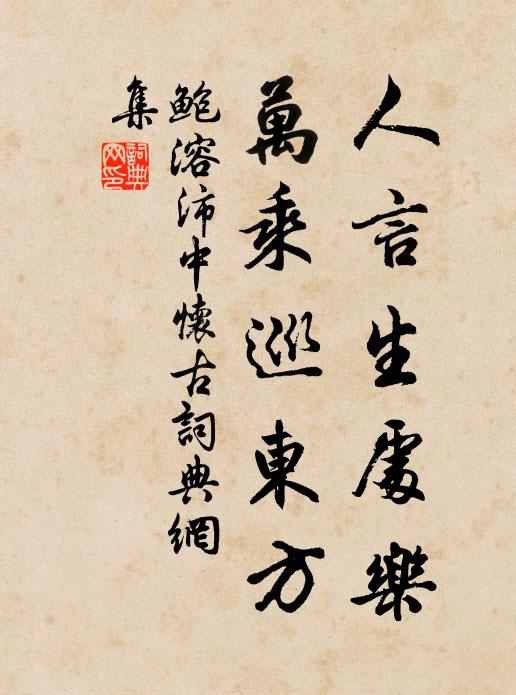 人言生處樂
萬乘巡東方
鮑溶沛中懷古詞典網
集
詞典網印